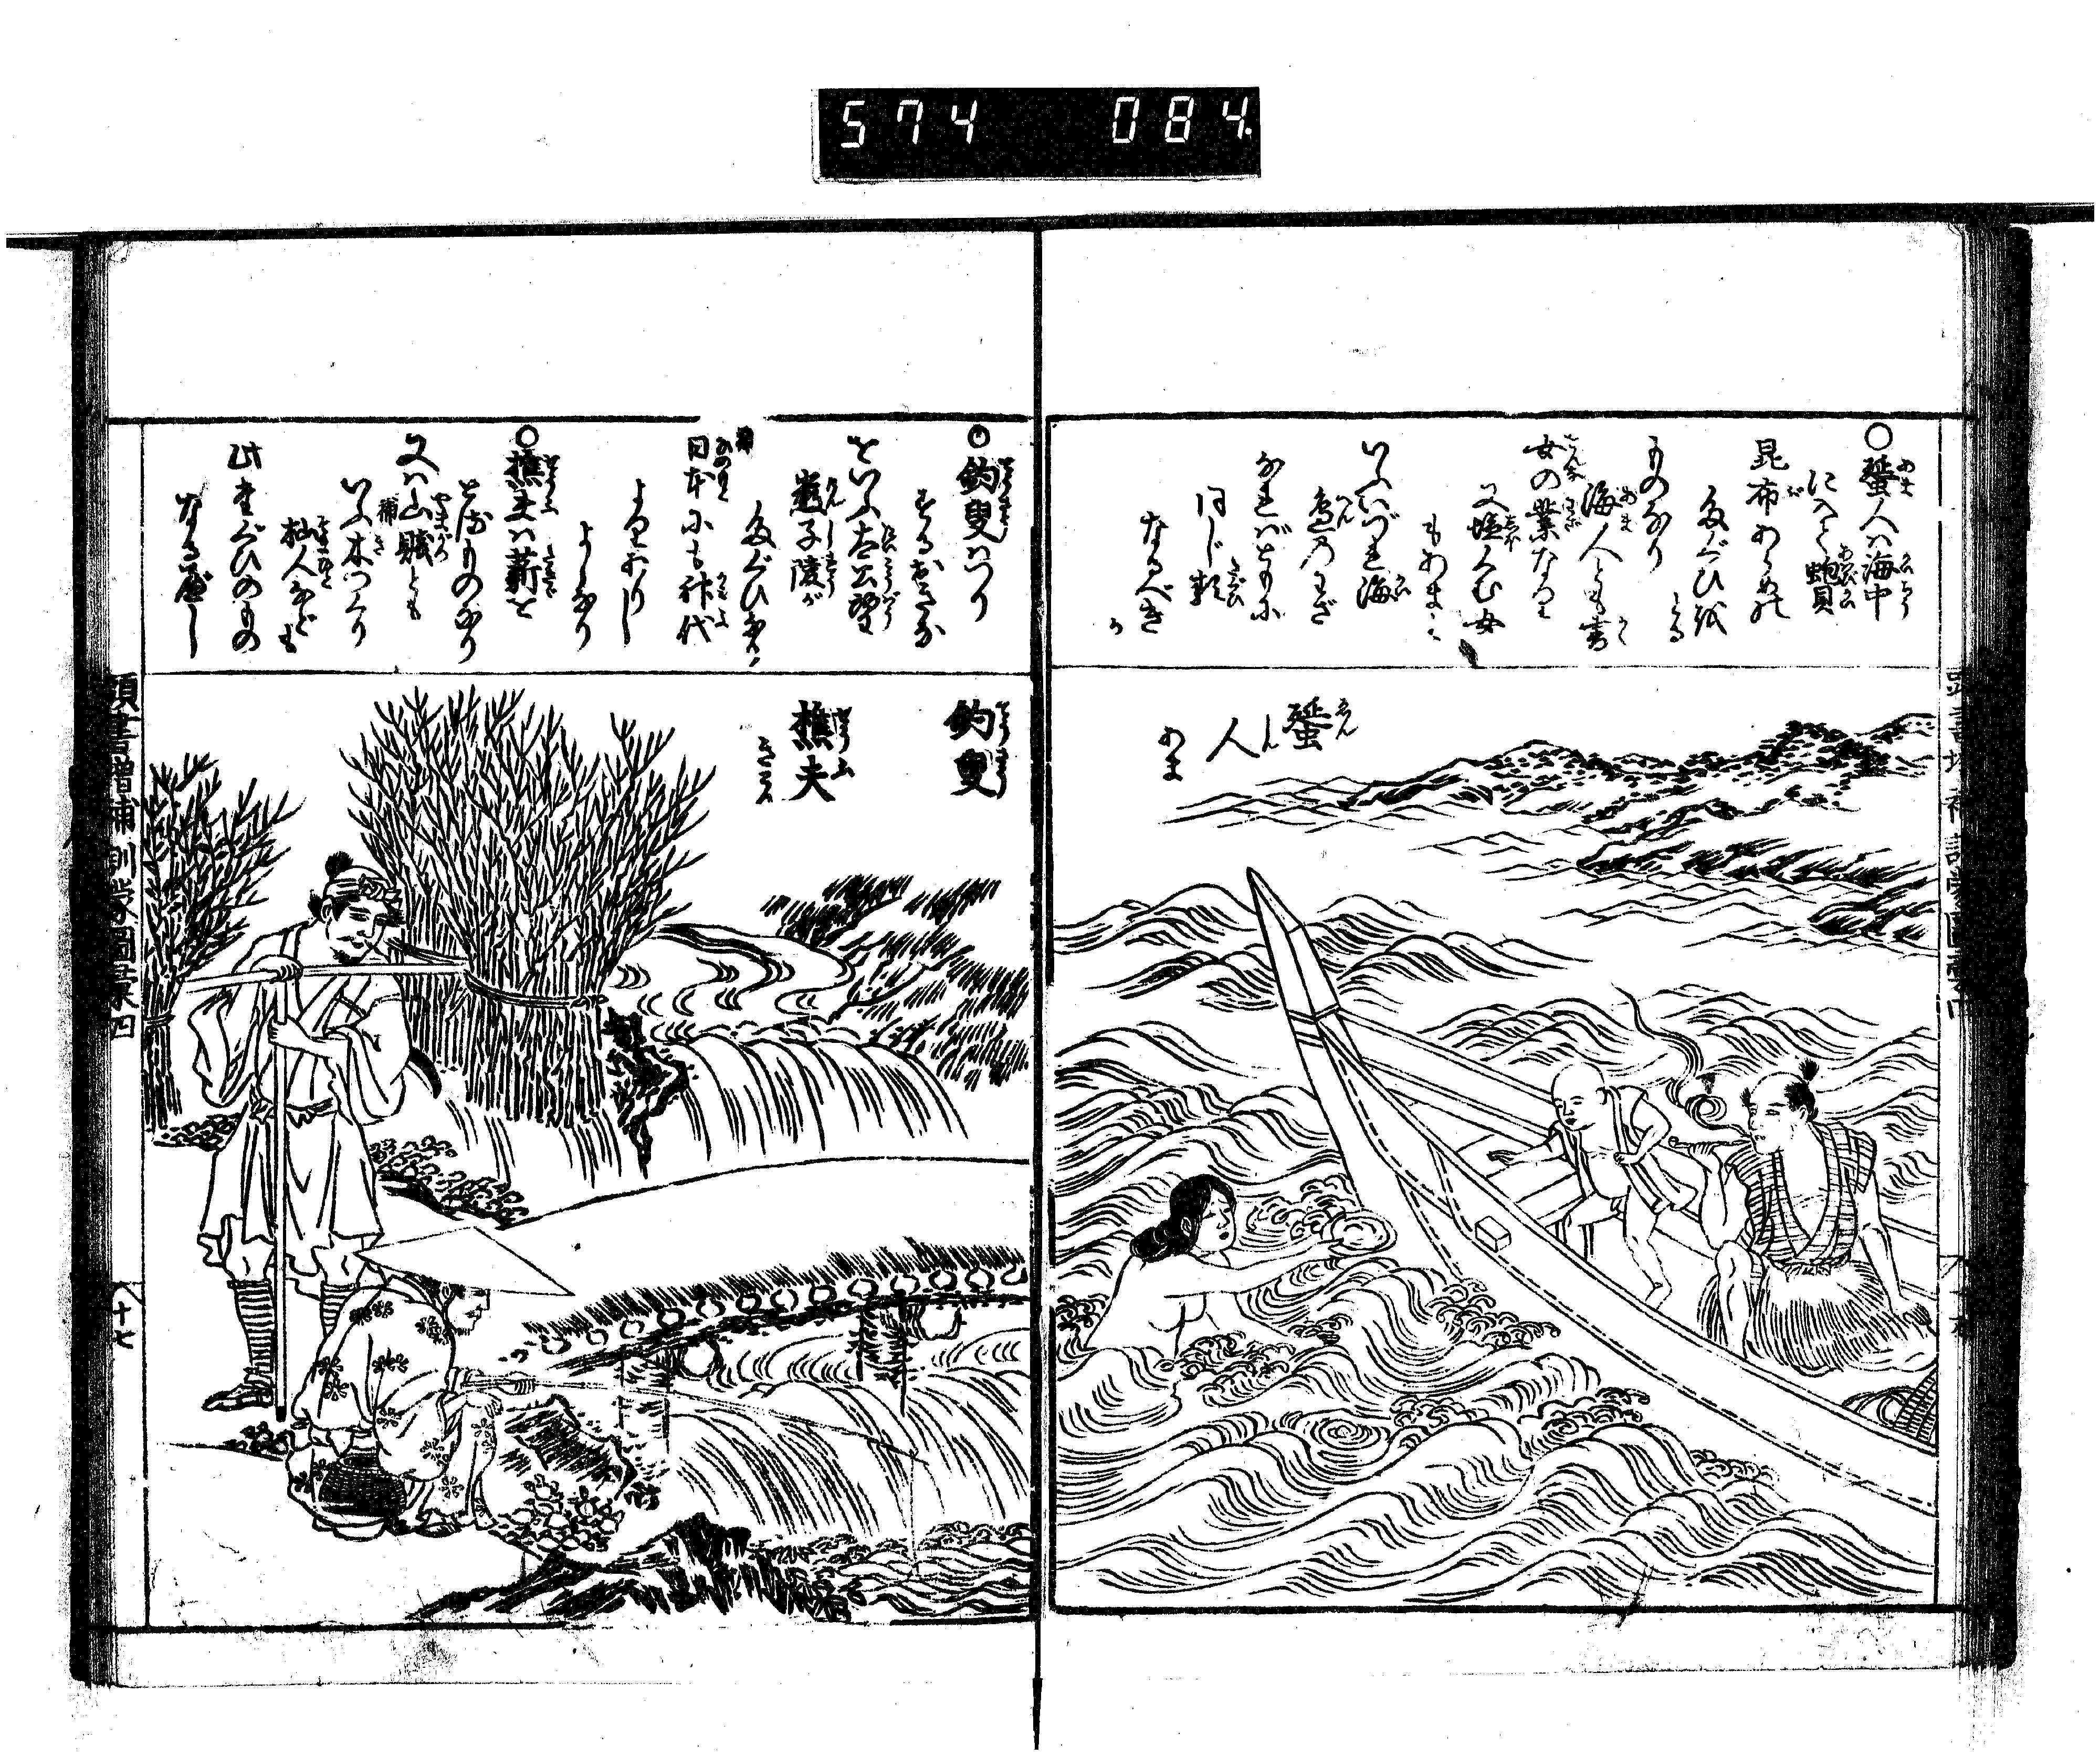 574 084
○蜑人ハ海中
に入て蚫貝
昆布わかめの
たぐひを
とる
ものなり
海人とも書
女の業なり
又塩くむ女
もあまと
いふいづれ海
邉のわざ
なれバともに
同じ類
なるべき
か
蜑人
あま
○釣叟ハつり
するおきな
をいふ太公望
嚴子陵が
たぐひなり
補
日本にも神代
よりおりし
よしなり
○樵夫ハ薪を
とるものなり
又ハ山賤とも
補
いふ木つくり
杣人なども
此たぐひのもの
なるべし
釣叟
樵夫
きこり
頭書増補訓蒙圖彙四
十七